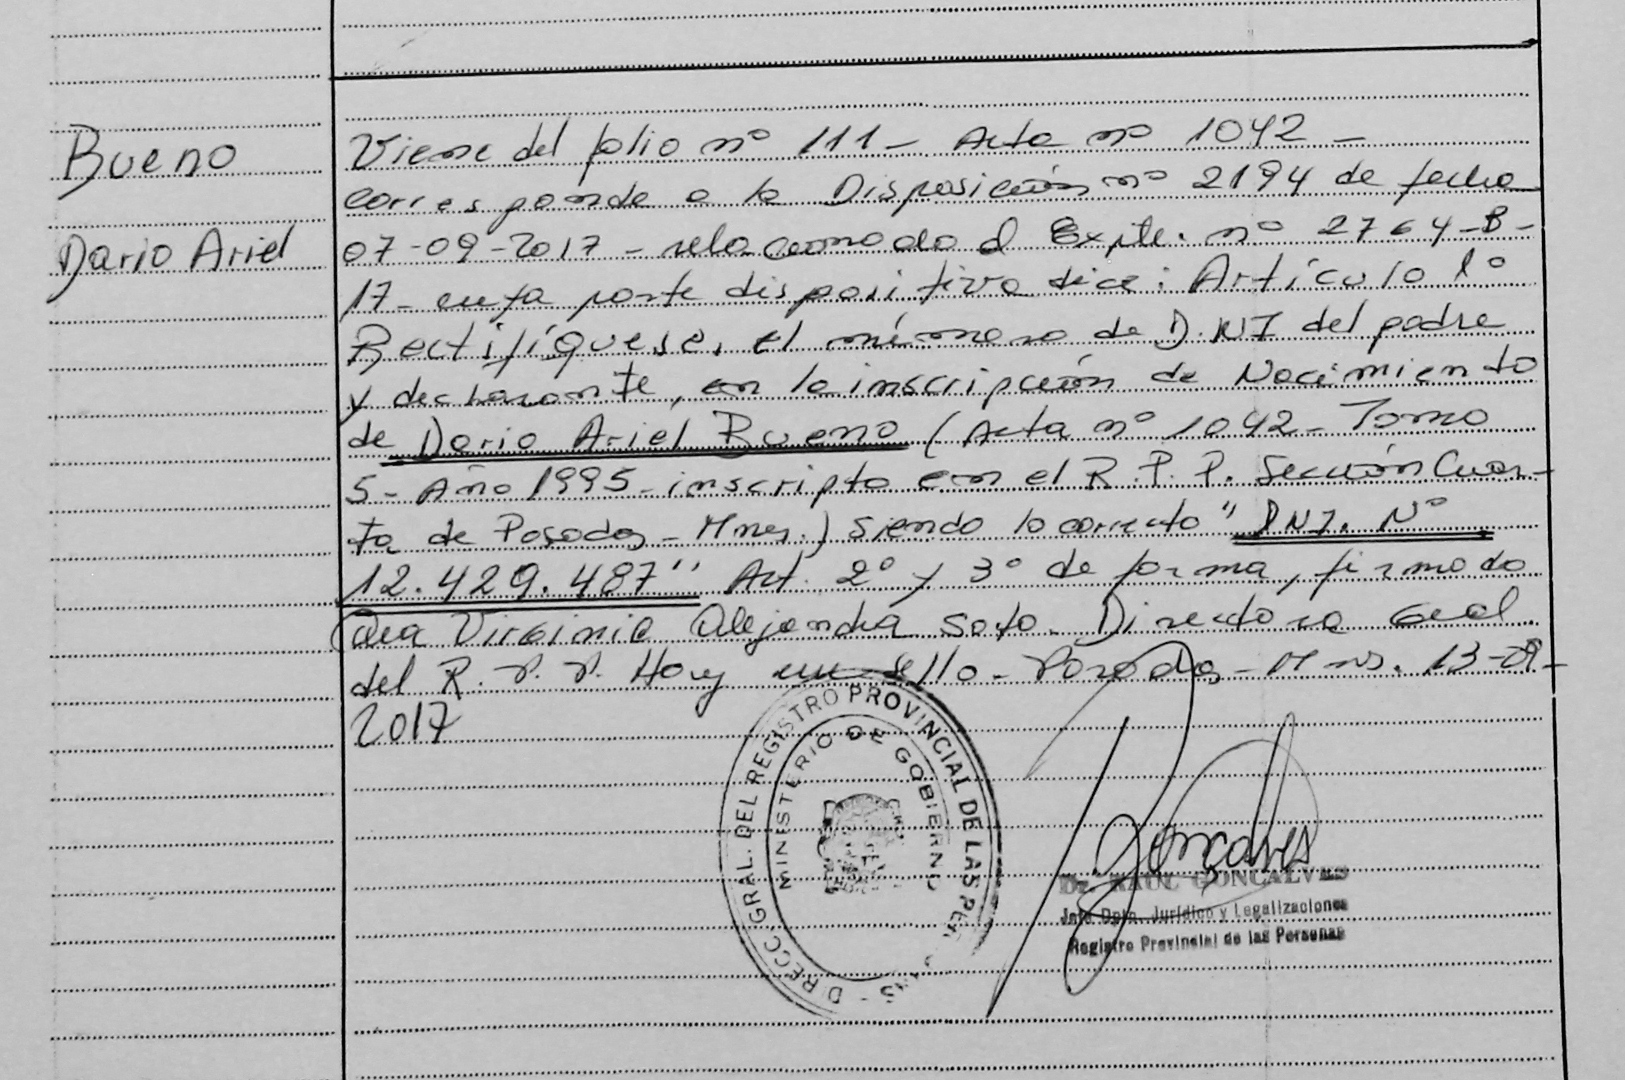 Bueno
Dario Ariel
Viene del folio nº 111 - Acta nº 1042 -
corresponde a la Disposición nº 2194 de fecha
07-09-2017 - relacionado al Expte. nº 2764-B-
17 - cuya parte dispositiva dice: Artículo 1º
Rectifíquese, el número de D.N.I del padre
y declarante, en la inscripción de Nacimiento
de Dario Ariel Bueno (Acta nº 1042 - Tomo
5 - Año 1995 - inscripto en el R.P.P. Sección Cuar-
ta de Posadas - Mnes.) siendo lo correcto "DNI. Nº
12.429.487" Art. 2º y 3º de forma, firmado
Virginia Alejandra Soto. Directora Gral.
del R.P.P. Hoy sello - Posadas - Mns. 13-09-
2017
DIRECC. GRAL. DEL REGISTRO PROVINCIAL DE LAS
MINISTERIO DE GOBIERNO
Gonçalves
Dr. RAUL GONCALVES
Jefe Dpto. Jurídico y Legalizaciones
Registro Provincial de las Personas